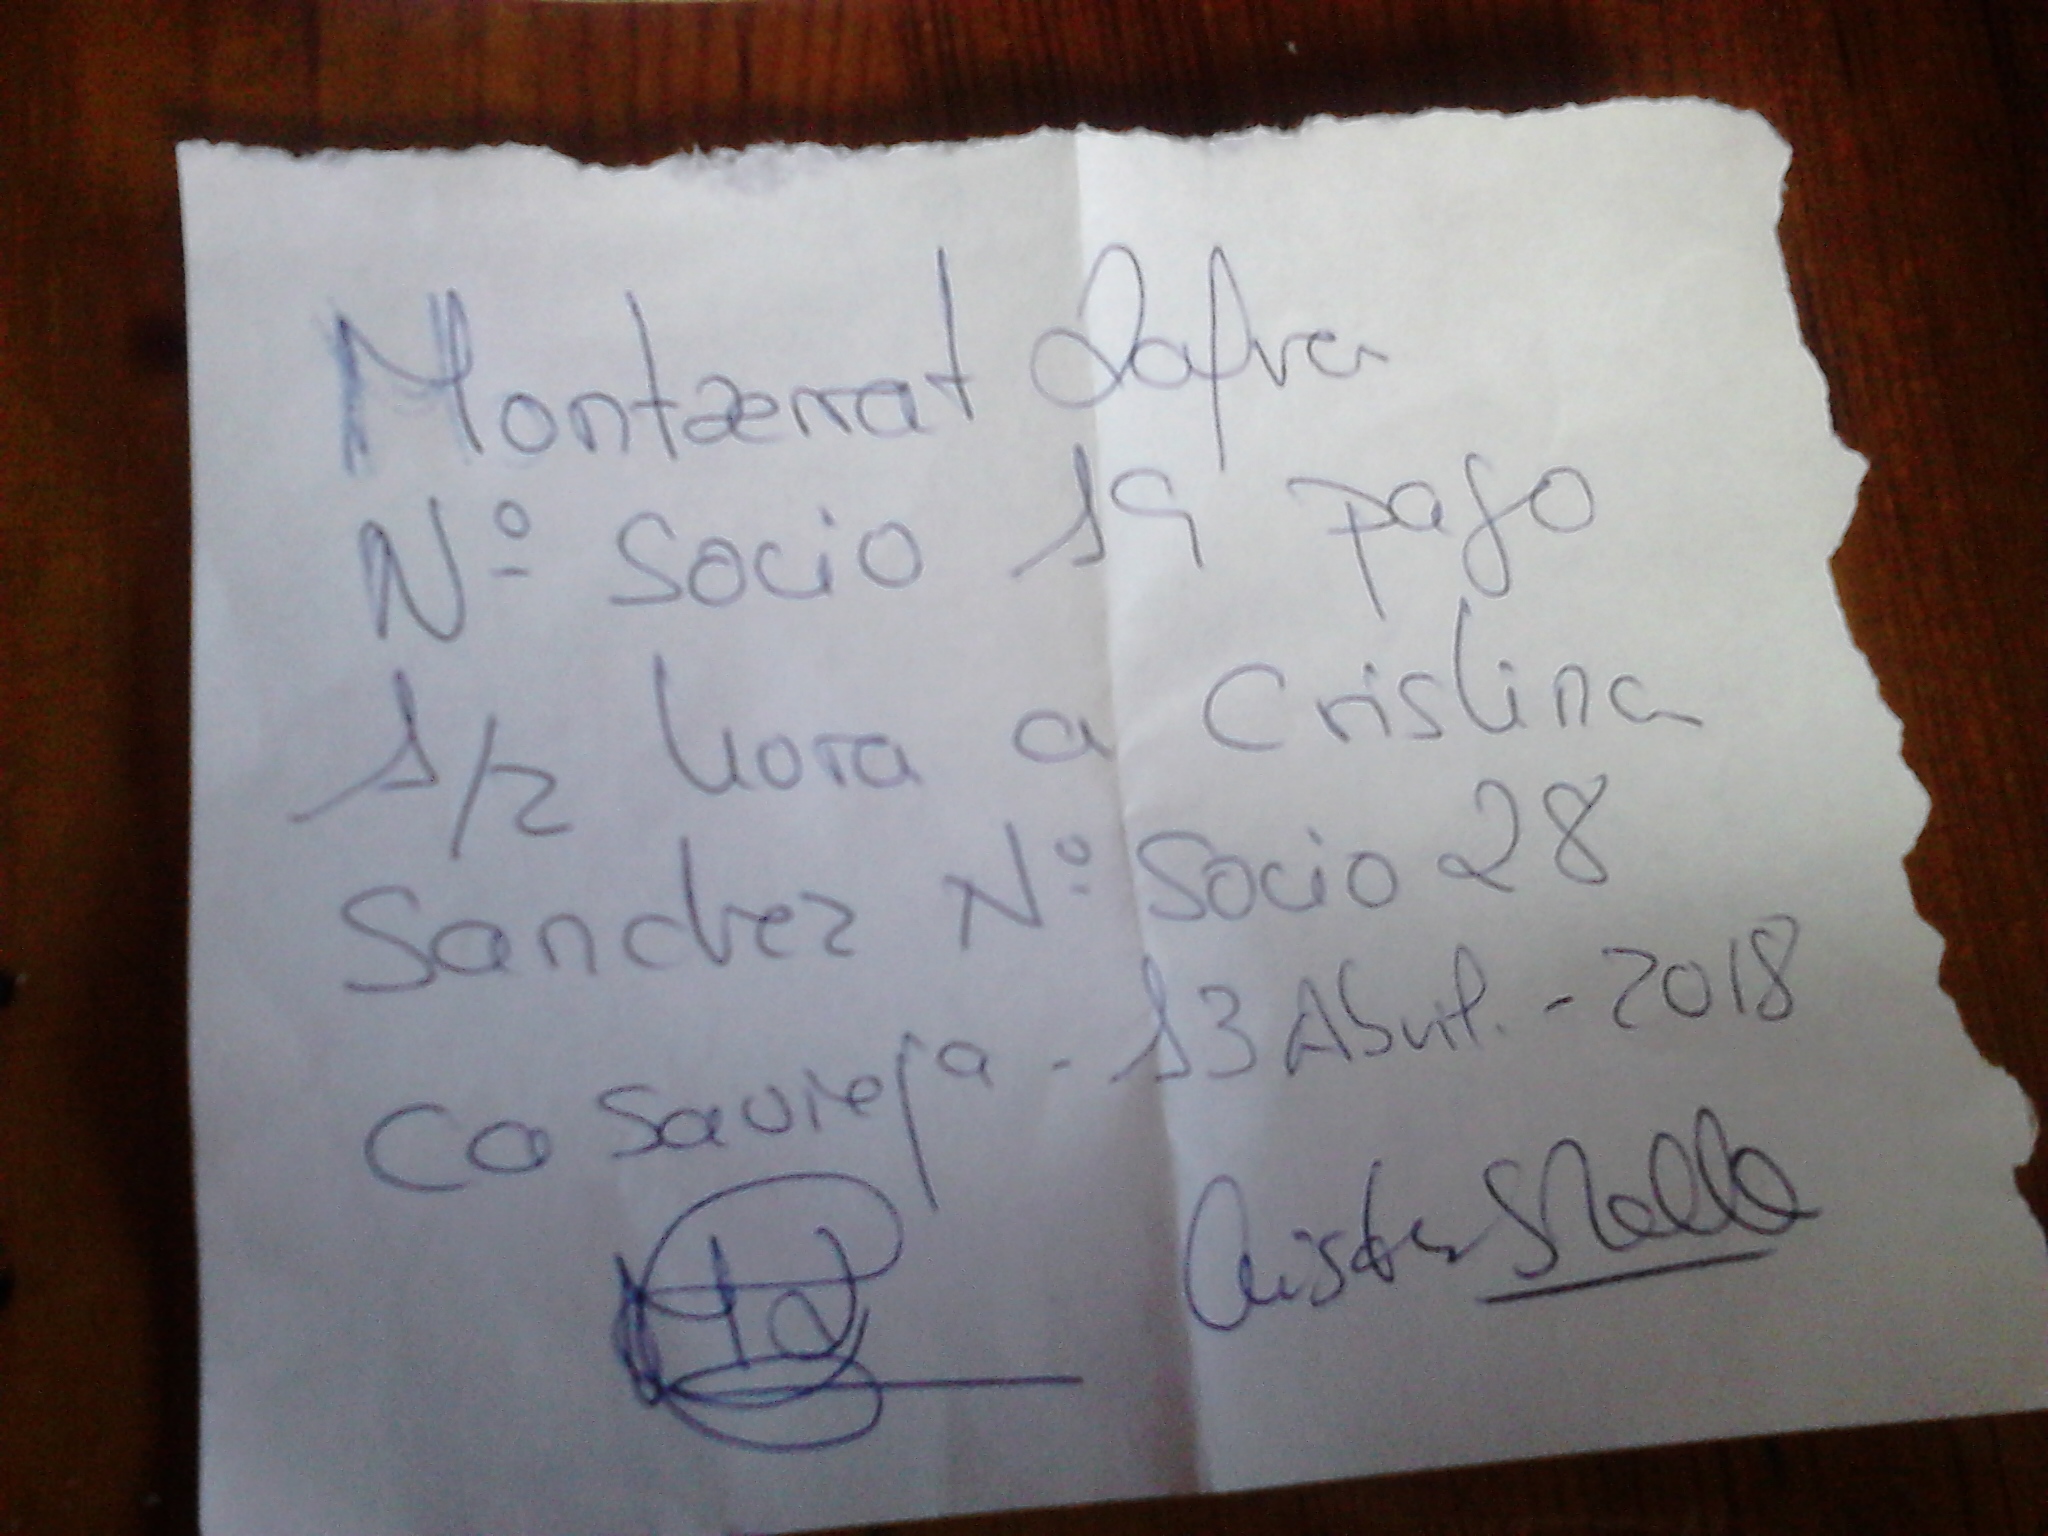 Montzerrat Zafra
Nº Socio 19 pago
1/2 hora a Cristina
Sanchez Nº Socio 28
Casavieja - 13 Abril. - 2018